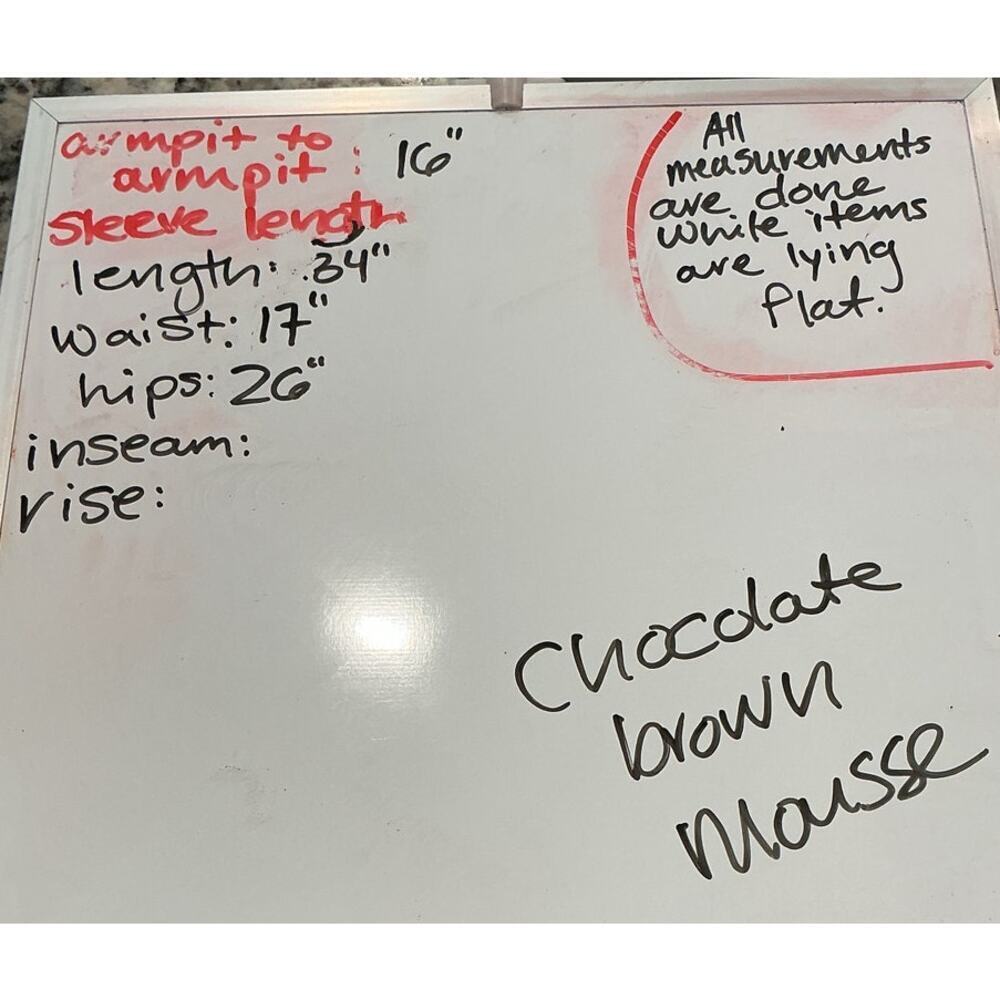 armpit to
armpit: 16"
sleeve length
length: 34"
waist: 17"
hips: 26"
inseam:
rise:
All
measurements
are done
while items
are lying
flat.
Chocolate
brown
Mousse